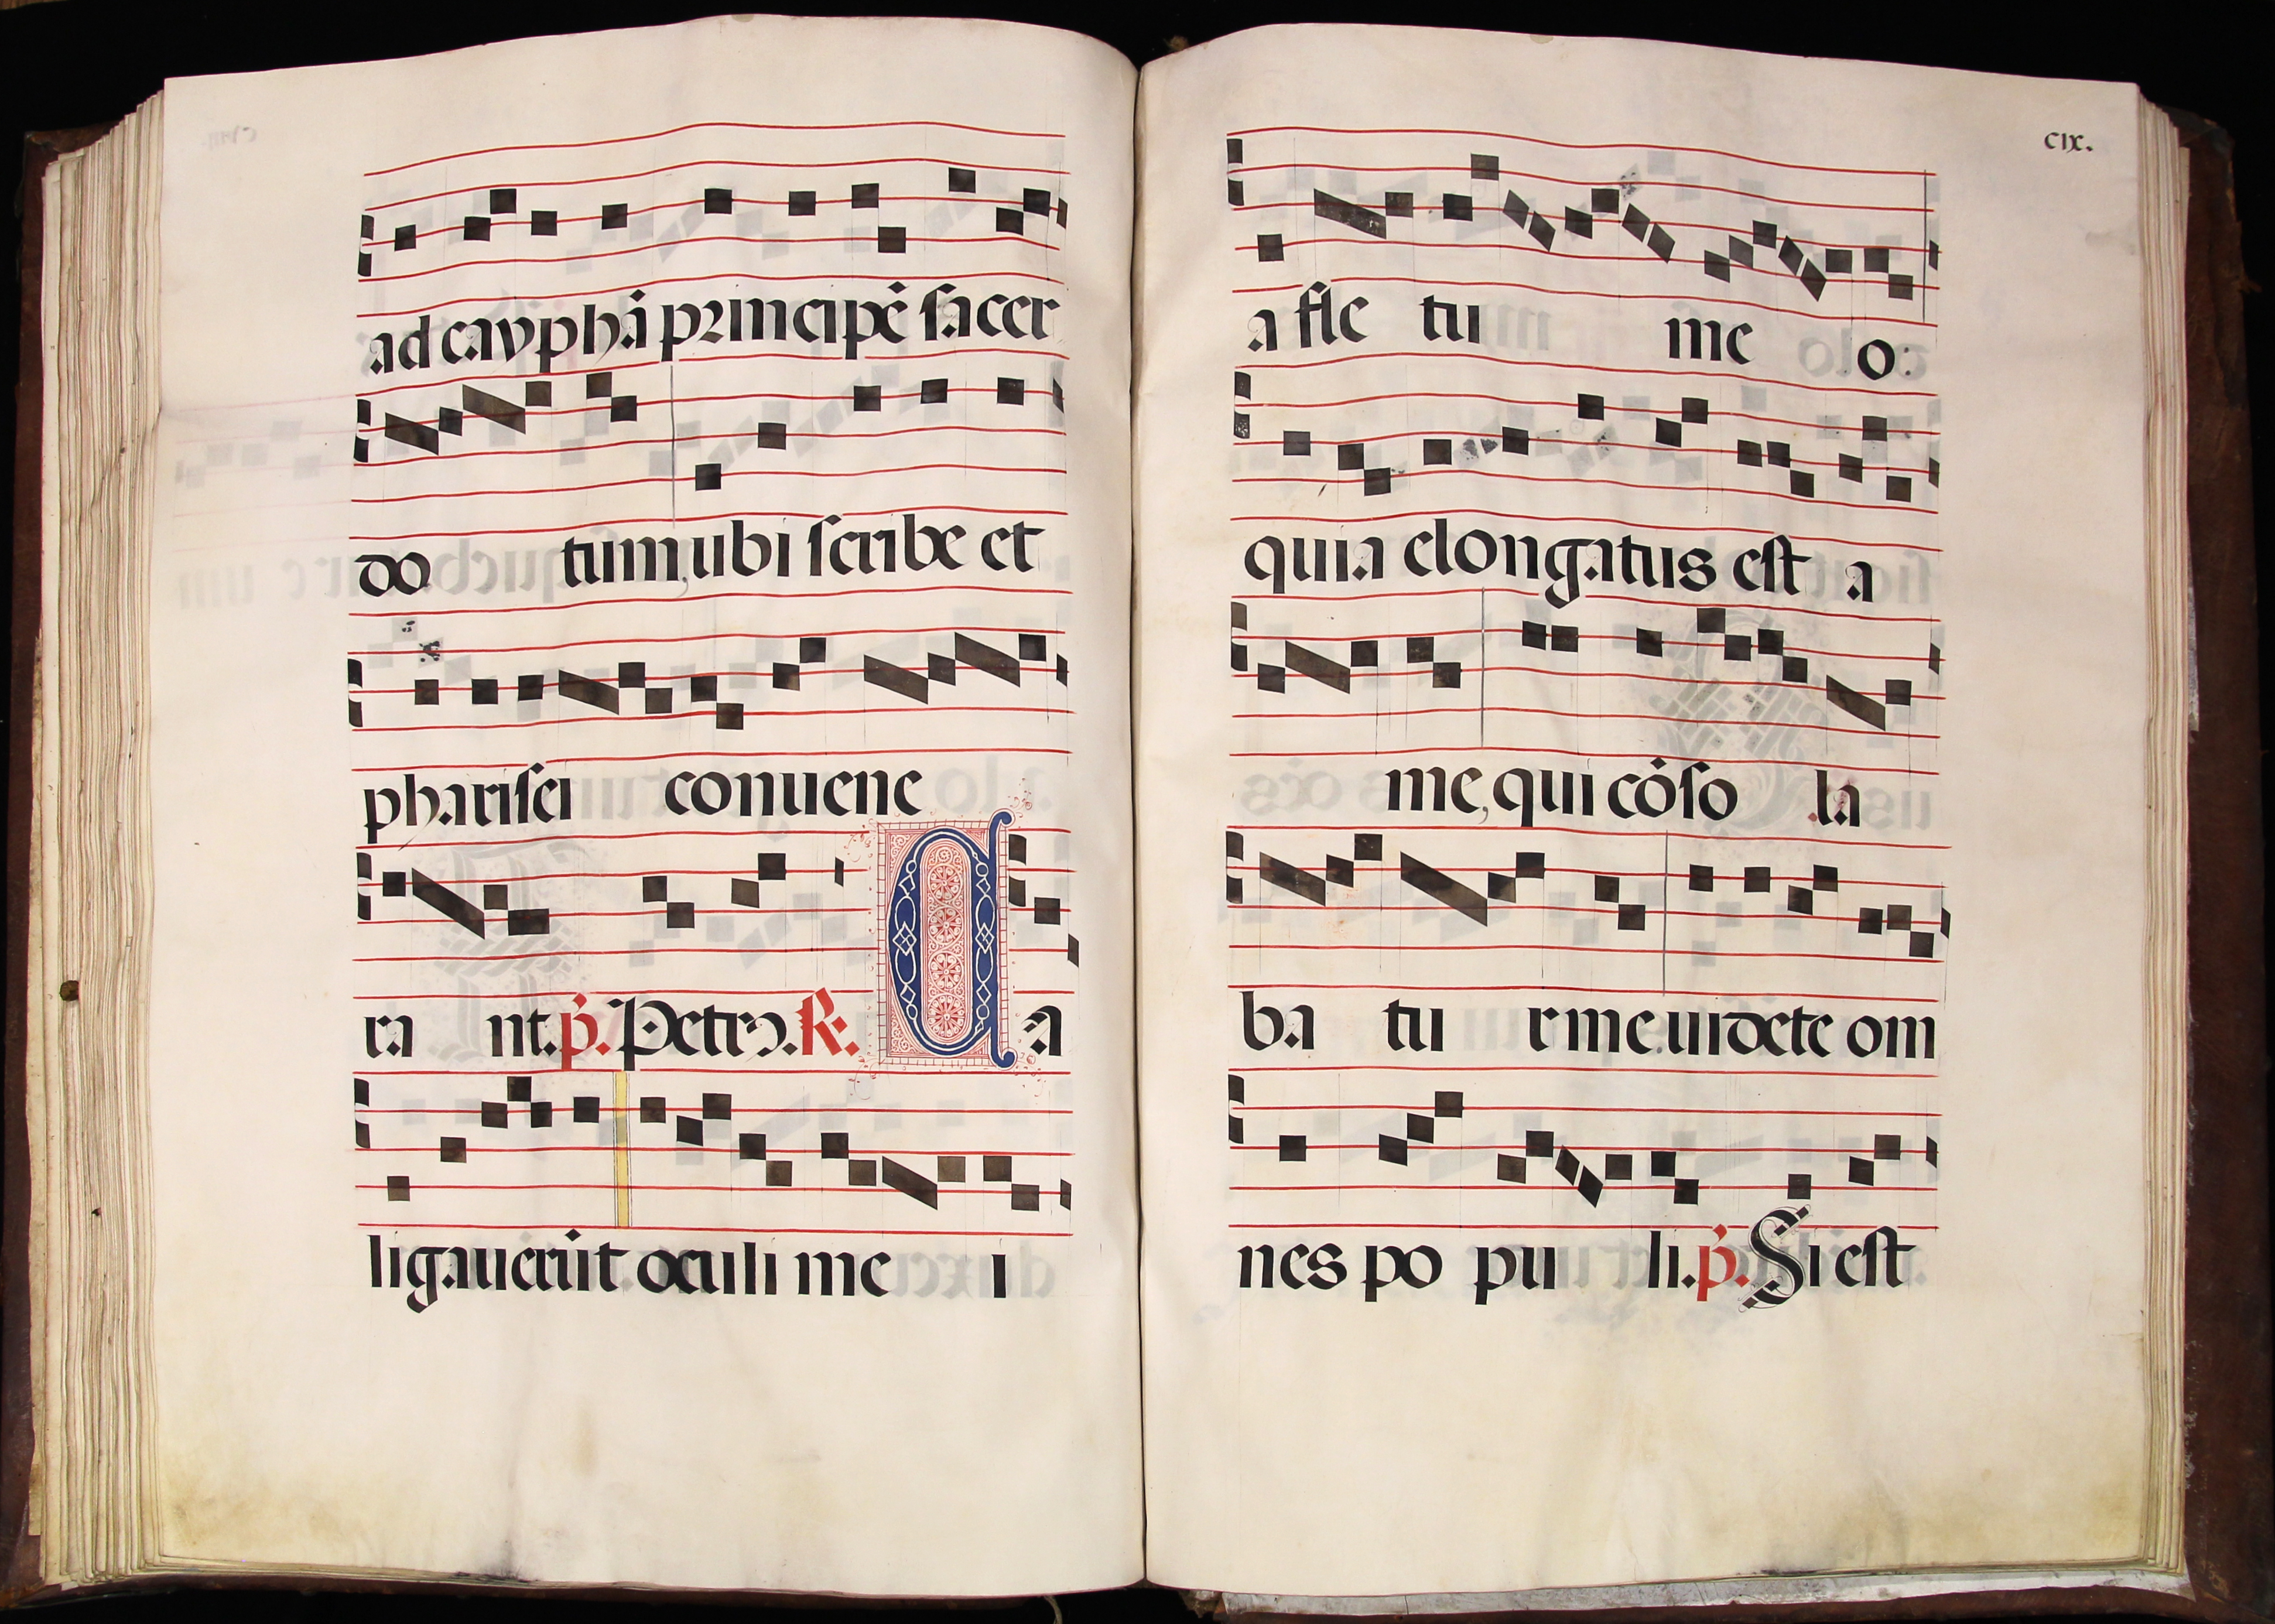 ad cayphā principē ſacer
do tum, ubi ſcribe et
phariſei conuene
ra nt. p̄. Petrus. R. Ca
ligauerūt oculi me i
cix.
a fle tu me o:
quia elongatus eſt a
me, qui cōſo la
ba tu r me. uidete om
nes po pu li. p̄. Si eſt